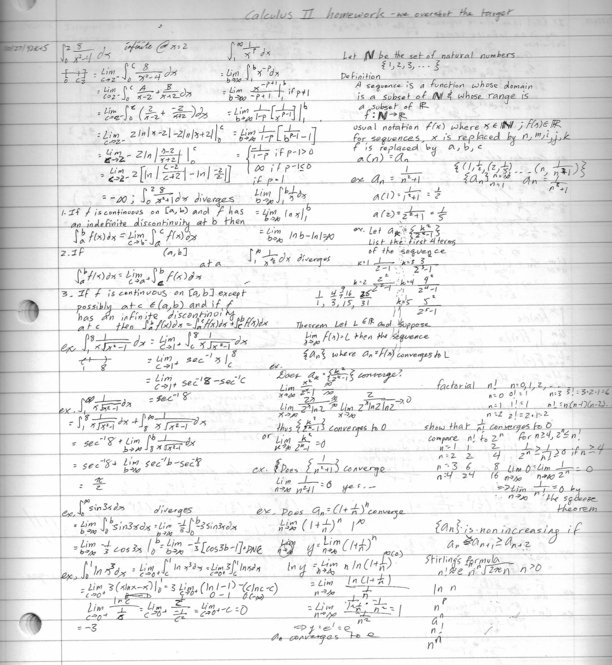 Calculus II homework - we overshot the target
∫₀² 8/(x²-4) dx infinite @ x=2
= Lim c→2⁻ ∫₀ᶜ 8/(x²-4) dx
= Lim c→2⁻ ∫₀ᶜ A/(x-2) + B/(x+2) dx
= Lim c→2⁻ ∫₀ᶜ (2/(x-2) + -2/(x+2)) dx
= Lim c→2⁻ 2ln|x-2| - 2ln|x+2| |₀ᶜ
= Lim c→2⁻ 2ln |(x-2)/(x+2)| |₀ᶜ
= Lim c→2⁻ 2[ln |(c-2)/(c+2)| - ln |-2/2|]
= -∞ ; diverges
1. If f is continuous on [a,b) and f has
an indefinite discontinuity at b then
∫ₐᵇ f(x)dx = Lim c→b⁻ ∫ₐᶜ f(x)dx
2. If (a,b]
at a
∫ₐᵇ f(x)dx = Lim c→a⁺ ∫꜀ᵇ f(x)dx
3. If f is continuous on [a,b] except
possibly at c ∈ (a,b) and if f
has an infinite discontinuity
at c then ∫ₐᵇ f(x)dx = ∫ₐᶜ f(x)dx + ∫꜀ᵇ f(x)dx
ex. ∫₁⁸ 1/(x√(x²-1)) dx = Lim c→1⁺ ∫꜀⁸ 1/(x√(x²-1)) dx
= Lim c→1⁺ sec⁻¹x |꜀⁸
= Lim c→1⁺ sec⁻¹8 - sec⁻¹c
= sec⁻¹8
ex. ∫₁^∞ 1/(x√(x²-1)) dx
= ∫₁⁸ 1/(x√(x²-1)) dx + ∫₈^∞ 1/(x√(x²-1)) dx
= sec⁻¹8 + Lim b→∞ ∫₈ᵇ 1/(x√(x²-1)) dx
= sec⁻¹8 + Lim b→∞ sec⁻¹b - sec⁻¹8
= π/2
ex. ∫₀^∞ sin3x dx diverges
= Lim b→∞ ∫₀ᵇ sin3x dx = Lim b→∞ 1/3 ∫₀ᵇ 3sin3x dx
= Lim b→∞ -1/3 cos3x |₀ᵇ = Lim b→∞ -1/3 [cos3b-1] = DNE
ex. ∫₀¹ ln x³ dx = Lim c→0⁺ ∫꜀¹ ln x³ dx = Lim c→0⁺ 3∫꜀¹ lnx dx
= Lim c→0⁺ 3(xlnx-x)|꜀¹ = 3 Lim c→0⁺ (ln1-1)-(clnc-c)
Lim c→0⁺ lnc/(1/c) = Lim c→0⁺ (1/c)/(-1/c²) = Lim c→0⁺ -c = 0
= -3
∫₁^∞ 1/xᵖ dx
= Lim b→∞ ∫₁ᵇ x⁻ᵖ dx
= Lim b→∞ x⁻ᵖ⁺¹/(-p+1) |₁ᵇ if p≠1
= Lim b→∞ 1/(1-p) [1/xᵖ⁻¹]₁ᵇ
= Lim b→∞ 1/(1-p) [1/bᵖ⁻¹ - 1]
= { -1/(1-p) if p-1>0
∞ if p-1≤0
if p=1
Lim b→∞ ∫₁ᵇ 1/x dx
= Lim b→∞ ln x |₁ᵇ
= Lim b→∞ ln b - ln 1 = ∞
∫₁^∞ dx diverges
Let N be the set of natural numbers
{1,2,3,...}
Definition
A sequence is a function whose domain
is a subset of N & whose range is
a subset of R
f: N→R
usual notation f(x) where x∈N ; f(n)∈R
for sequences, x is replaced by n,m,i,j,k
f is replaced by a,b,c
a(n) = aₙ
ex. aₙ = 1/(n²+1)
a(1) = 1/(1²+1) = 1/2
a(2) = 1/(2²+1) = 1/5
ex. Let aₖ = {k²/(2ᵏ-1)}
List the first 4 terms
of the sequence
k=1 1/(2-1) k=3 3²/(2³-1)
k=2 2²/(2²-1) k=4 4²/(2⁴-1)
k=5 5²/(2⁵-1)
Theorem Let L∈R and suppose
Lim n→∞ f(n)=L then the sequence
{aₙ} where aₙ=f(n) converges to L
ex.
Does aₖ = {k²/(2ᵏ-1)} converge?
thus {k²/(2ᵏ-1)} converges to 0
or Lim k→∞ k²/(2ᵏ-1) = 0
ex. Does {1/(n²+1)} converge
Lim n→∞ 1/(n²+1) = 0 yes.
ex. Does aₙ = (1+1/n)ⁿ converge
Lim n→∞ (1+1/n)ⁿ 1^∞
y = Lim n→∞ (1+1/n)ⁿ
ln y = Lim n→∞ n ln(1+1/n)
= Lim n→∞ ln(1+1/n)/(1/n)
⇒ y = e¹ = e
aₙ converges to e
factorial n! n=0,1,2,...
n=0 0!=1 n=3 3!=3·2·1=6
n=1 1!=1 n!=n(n-1)(n-2)..
n=2 2!=2·1=2
show that 1/n! converges to 0
compare n! to 2ⁿ for n≥4, 2ⁿ≤n!
n=1 1 2
n=2 2 4
n=3 6 8
n=4 24 16
1/2ⁿ ≥ 1/n! ≥ 0 if n≥4
Lim n→∞ 0 = Lim n→∞ 1/2ⁿ = 0
⇒ Lim n→∞ 1/n! = 0 by
the squeeze
theorem
{aₙ} is nonincreasing if
aₙ ≥ aₙ₊₁ ≥ aₙ₊₂
Stirling's formula
n! ≈ e⁻ⁿ nⁿ √(2πn) n>0
ln n
nᵖ
aⁿ
n!
nⁿ